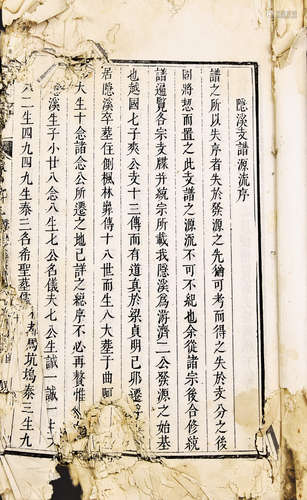 隱溪支譜源流序
譜之所以失序者失於發源之先猶可考而得之失於支分之後
則將忽而置之此支譜之源流不可不紀也余從諸宗後合修統
譜遍覽各宗支牒并統宗所載我隱溪為濟二公發源之始基
也越國七子爽公支十三傳而有道真於梁貞明己卯遷
若隱溪卒葬住側楓林崗傳十八世而生八大葬于曲
大生十念諸念公所遷之地已詳之總序不必再贅惟
隱溪生子小廿八念八生七公名儀夫七公生誠一誠一生大
八二生四九四九生泰三名希聖葬馬坑塢泰三生九